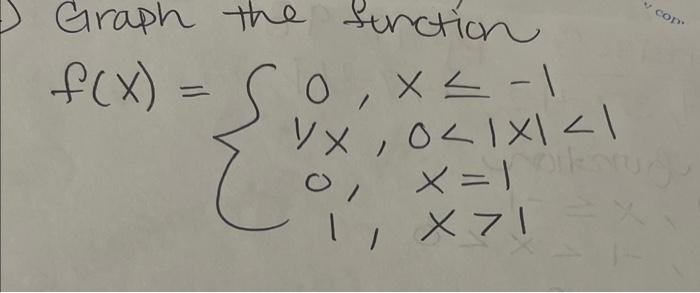 ) Graph the function
f(x) = { 0, x ≤ -1
1/x, 0 < |x| < 1
0, x = 1
1, x > 1